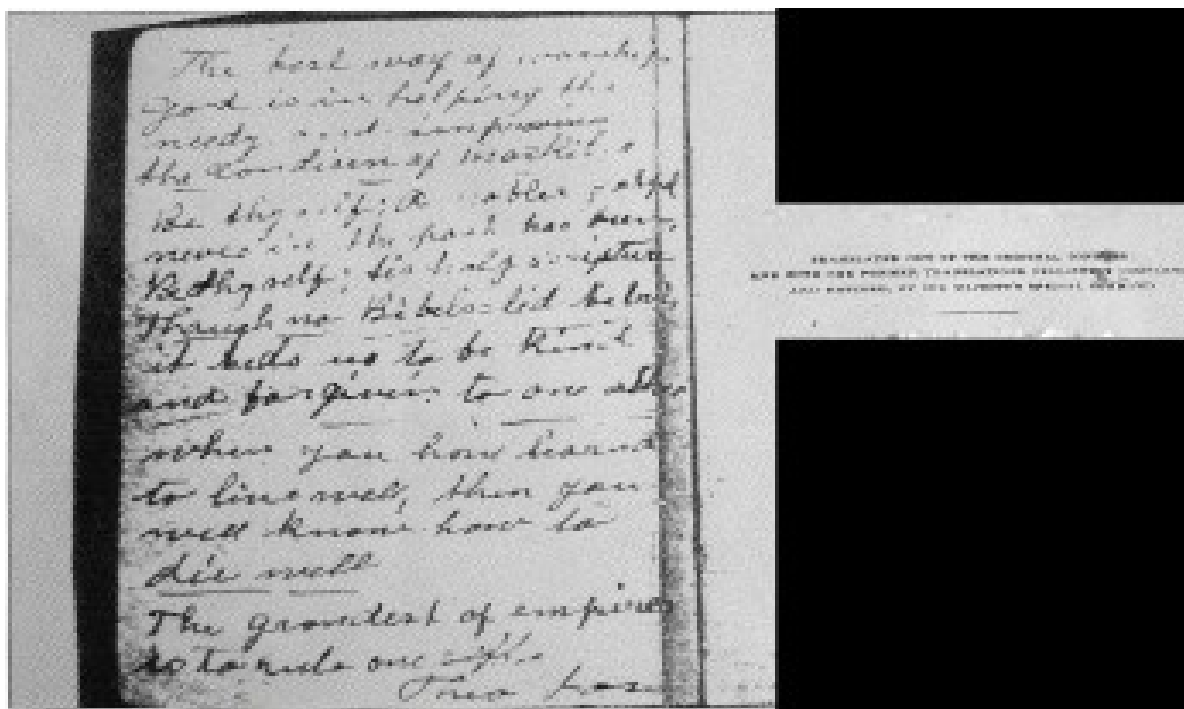 The best way of worship
God is in helping the
needy and improving
the Condision of
Be thyself; A nobler
never in the past has been,
Be thyself; his holy scripture
Though no Bibels
it bids us to be Kind
and forgiving to on other
when you how learned
to line well, then you
will know how to
die well
The grandest of empires
is to rule one self.
TRANSLATED OUT OF THE ORIGINAL TONGUES
AND WITH THE FORMER TRANSLATIONS DILIGENTLY COMPARED
AND REVISED, BY HIS MAJESTY'S SPECIAL COMMAND